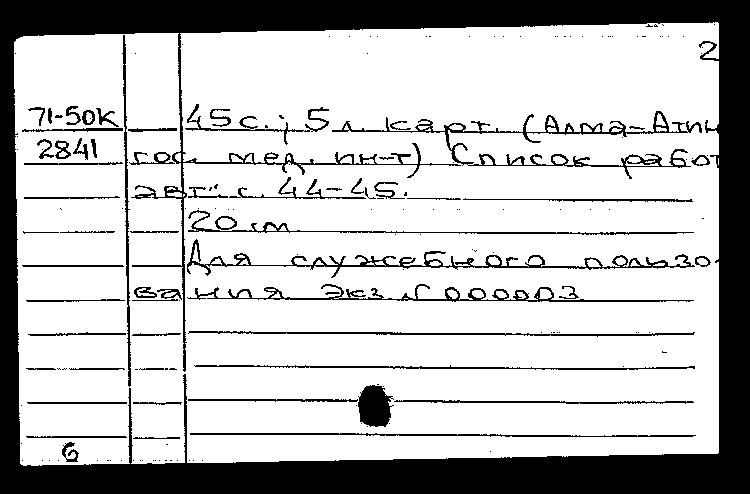 2
71-50К 45 с.; 5 л. карт. (Алма-Атин
2841 гос. мед. ин-т) Список работ
авт.: с. 44-45.
20 см.
Для служебного пользо-
вания. Экз. № 000003
6